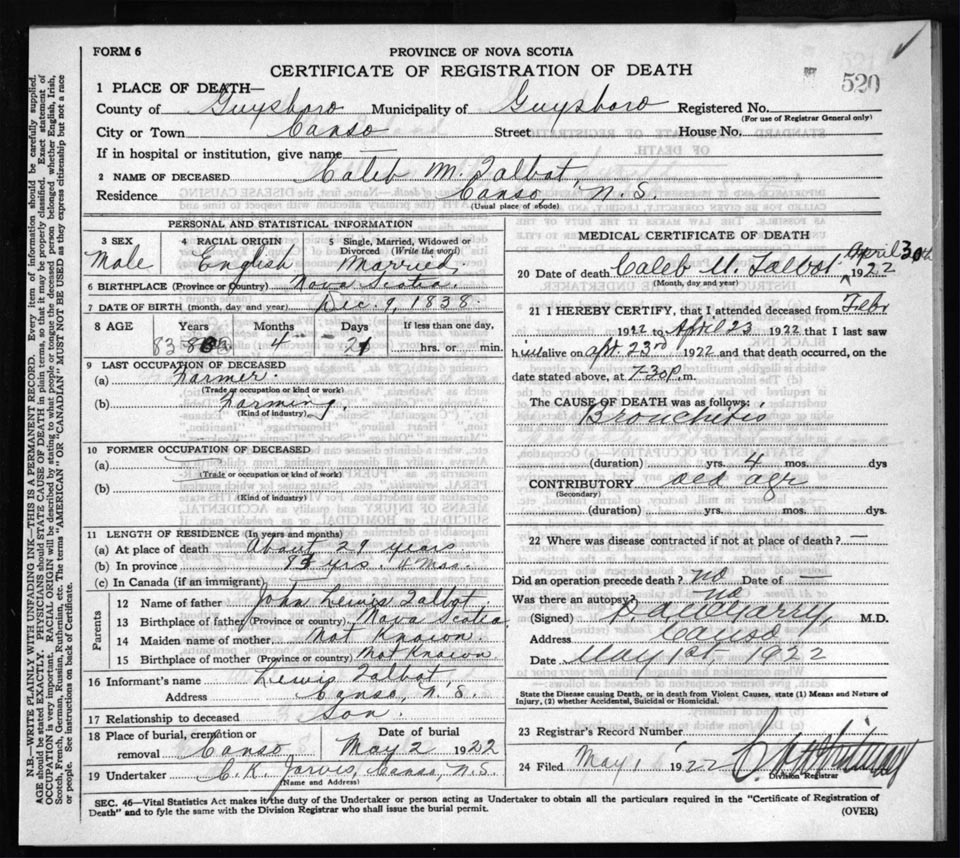 FORM 6
PROVINCE OF NOVA SCOTIA
CERTIFICATE OF REGISTRATION OF DEATH
520
1 PLACE OF DEATH—
County of Guysboro Municipality of Guysboro Registered No.
(For use of Registrar General only)
City or Town Canso Street House No.
If in hospital or institution, give name —
2 NAME OF DECEASED Caleb M. Talbot,
Residence Canso, N.S.
(Usual place of abode)
PERSONAL AND STATISTICAL INFORMATION
3 SEX 4 RACIAL ORIGIN 5 Single, Married, Widowed or
Divorced (Write the word)
Male English Married
6 BIRTHPLACE (Province or Country) Nova Scotia.
7 DATE OF BIRTH (month, day and year) Dec. 9, 1838.
8 AGE Years Months Days If less than one day,
83 4 21 hrs. or min.
9 LAST OCCUPATION OF DECEASED
(a) Farmer.
(Trade or occupation or kind or work)
(b) Farming.
(Kind of industry)
10 FORMER OCCUPATION OF DECEASED
(a)
(Trade or occupation or kind of work)
(b)
(Kind of industry)
11 LENGTH OF RESIDENCE (In years and months)
(a) At place of death About 29 years
(b) In province yrs. 4 Mos.
(c) In Canada (if an immigrant)
Parents
12 Name of father John Lewis Talbot
13 Birthplace of father (Province or country) Nova Scotia
14 Maiden name of mother Not Known
15 Birthplace of mother (Province or country) Not Known
16 Informant's name Lewis Talbot,
Address Canso, N.S.
17 Relationship to deceased Son.
18 Place of burial, cremation or Date of burial
removal Canso May 2 1922
19 Undertaker C. K. Jarvis, Canso, N.S.
(Name and Address)
MEDICAL CERTIFICATE OF DEATH
20 Date of death Caleb M. Talbot April 30th 1922
(Month, day and year)
21 I HEREBY CERTIFY, that I attended deceased from Febr
1922 to April 23 1922 that I last saw
him alive on apr. 23rd 1922 and that death occurred, on the
date stated above, at 7-30 P.m.
The CAUSE OF DEATH was as follows:
Bronchitis
(duration) yrs. 4 mos. dys
CONTRIBUTORY old age
(Secondary)
(duration) yrs. mos. dys.
22 Where was disease contracted if not at place of death? —
Did an operation precede death? no Date of —
Was there an autopsy? no
(Signed) M.D.
Address Canso
Date May 1st, 1922
State the Disease causing Death, or in death from Violent Causes, state (1) Means and Nature of
Injury, (2) whether Accidental, Suicidal or Homicidal.
23 Registrar's Record Number
24 Filed May 1 1922
Division Registrar
SEC. 46—Vital Statistics Act makes it the duty of the Undertaker or person acting as Undertaker to obtain all the particulars required in the "Certificate of Registration of
Death" and to fyle the same with the Division Registrar who shall issue the burial permit.
(OVER)
N.B.—WRITE PLAINLY WITH UNFADING INK—THIS IS A PERMANENT RECORD. Every item of information should be carefully supplied.
AGE should be stated EXACTLY. PHYSICIANS should STATE CAUSE OF DEATH in plain terms, so that it may be properly classified. Exact statement of
OCCUPATION is very important. RACIAL ORIGIN will be described by stating to what people or tongue the deceased person belonged whether English, Irish,
Scotch, French, German, Russian, Ruthenian, etc. The terms "AMERICAN" OR "CANADIAN" MUST NOT BE USED as they express citizenship but not a race
or people. See instructions on back of Certificate.